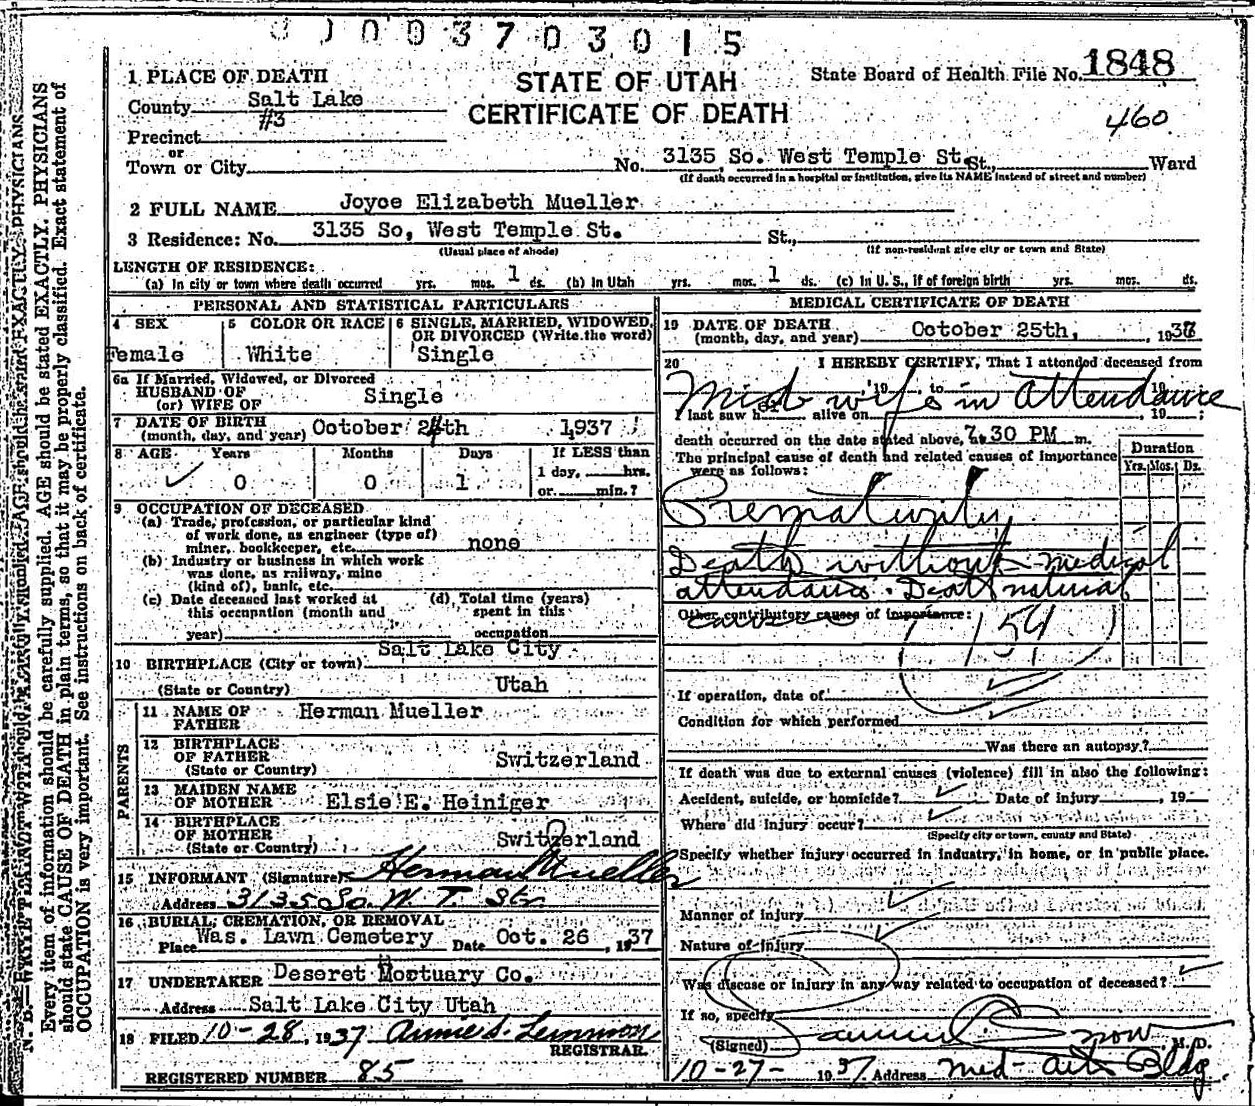 0 0 0 3 7 0 3 0 1 5
STATE OF UTAH
CERTIFICATE OF DEATH
State Board of Health File No. 1848
460
1 PLACE OF DEATH
County Salt Lake
#3
Precinct
or
Town or City No. 3135 So. West Temple St. St., Ward
(If death occurred in a hospital or institution, give its NAME instead of street and number)
2 FULL NAME Joyce Elizabeth Mueller
3 Residence: No. 3135 So, West Temple St. St.,
(Usual place of abode) (If non-resident give city or town and State)
LENGTH OF RESIDENCE:
(a) In city or town where death occurred yrs. mos. 1 ds. (b) In Utah yrs. mos. 1 ds. (c) In U. S., if of foreign birth yrs. mos. ds.
PERSONAL AND STATISTICAL PARTICULARS
4 SEX
Female
5 COLOR OR RACE
White
6 SINGLE, MARRIED, WIDOWED,
OR DIVORCED (Write the word)
Single
6a If Married, Widowed, or Divorced
HUSBAND OF
(or) WIFE OF Single
7 DATE OF BIRTH
(month, day, and year) October 24th 1937
8 AGE Years Months Days If LESS than
1 day, hrs.
or min.?
0 0 1
9 OCCUPATION OF DECEASED
(a) Trade, profession, or particular kind
of work done, as engineer (type of)
miner, bookkeeper, etc. none
(b) Industry or business in which work
was done, as railway, mine
(kind of), bank, etc.
(c) Date deceased last worked at
this occupation (month and
year)
(d) Total time (years)
spent in this
occupation
Salt Lake City
10 BIRTHPLACE (City or town)
(State or Country) Utah
PARENTS
11 NAME OF
FATHER Herman Mueller
12 BIRTHPLACE
OF FATHER
(State or Country) Switzerland
13 MAIDEN NAME
OF MOTHER Elsie E. Heiniger
14 BIRTHPLACE
OF MOTHER
(State or Country) Switzerland
15 INFORMANT (Signature) Herman Mueller
Address 3135 So. W. T. Str
16 BURIAL, CREMATION, OR REMOVAL
Place Was. Lawn Cemetery Date Oct. 26, 1937
17 UNDERTAKER Deseret Mortuary Co.
Address Salt Lake City Utah
18 FILED 10-28, 1937 Annie S. Lemmon
REGISTRAR.
REGISTERED NUMBER 85
MEDICAL CERTIFICATE OF DEATH
19 DATE OF DEATH
(month, day, and year) October 25th, 1937
20 I HEREBY CERTIFY, That I attended deceased from
19 to 19
Mid wife in attendance
I last saw her alive on , 19 ;
death occurred on the date stated above, at 7.30 PM m.
The principal cause of death and related causes of importance
were as follows:
Duration
Yrs. Mos. Ds.
Prematurity
Death without medical
attendance. Death natural
Other contributory causes of importance:
159
If operation, date of
Condition for which performed
Was there an autopsy?
If death was due to external causes (violence) fill in also the following:
Accident, suicide, or homicide? Date of injury , 19
Where did injury occur?
(Specify city or town, county and State)
Specify whether injury occurred in industry, in home, or in public place.
Manner of injury
Nature of injury
Was disease or injury in any way related to occupation of deceased?
If so, specify
(Signed) Snow M. D.
10-27- 1937 Address Med- Arts Bldg.
Every item of information should be carefully supplied. AGE should be stated EXACTLY. PHYSICIANS
should state CAUSE OF DEATH in plain terms, so that it may be properly classified. Exact statement of
OCCUPATION is very important. See instructions on back of certificate.